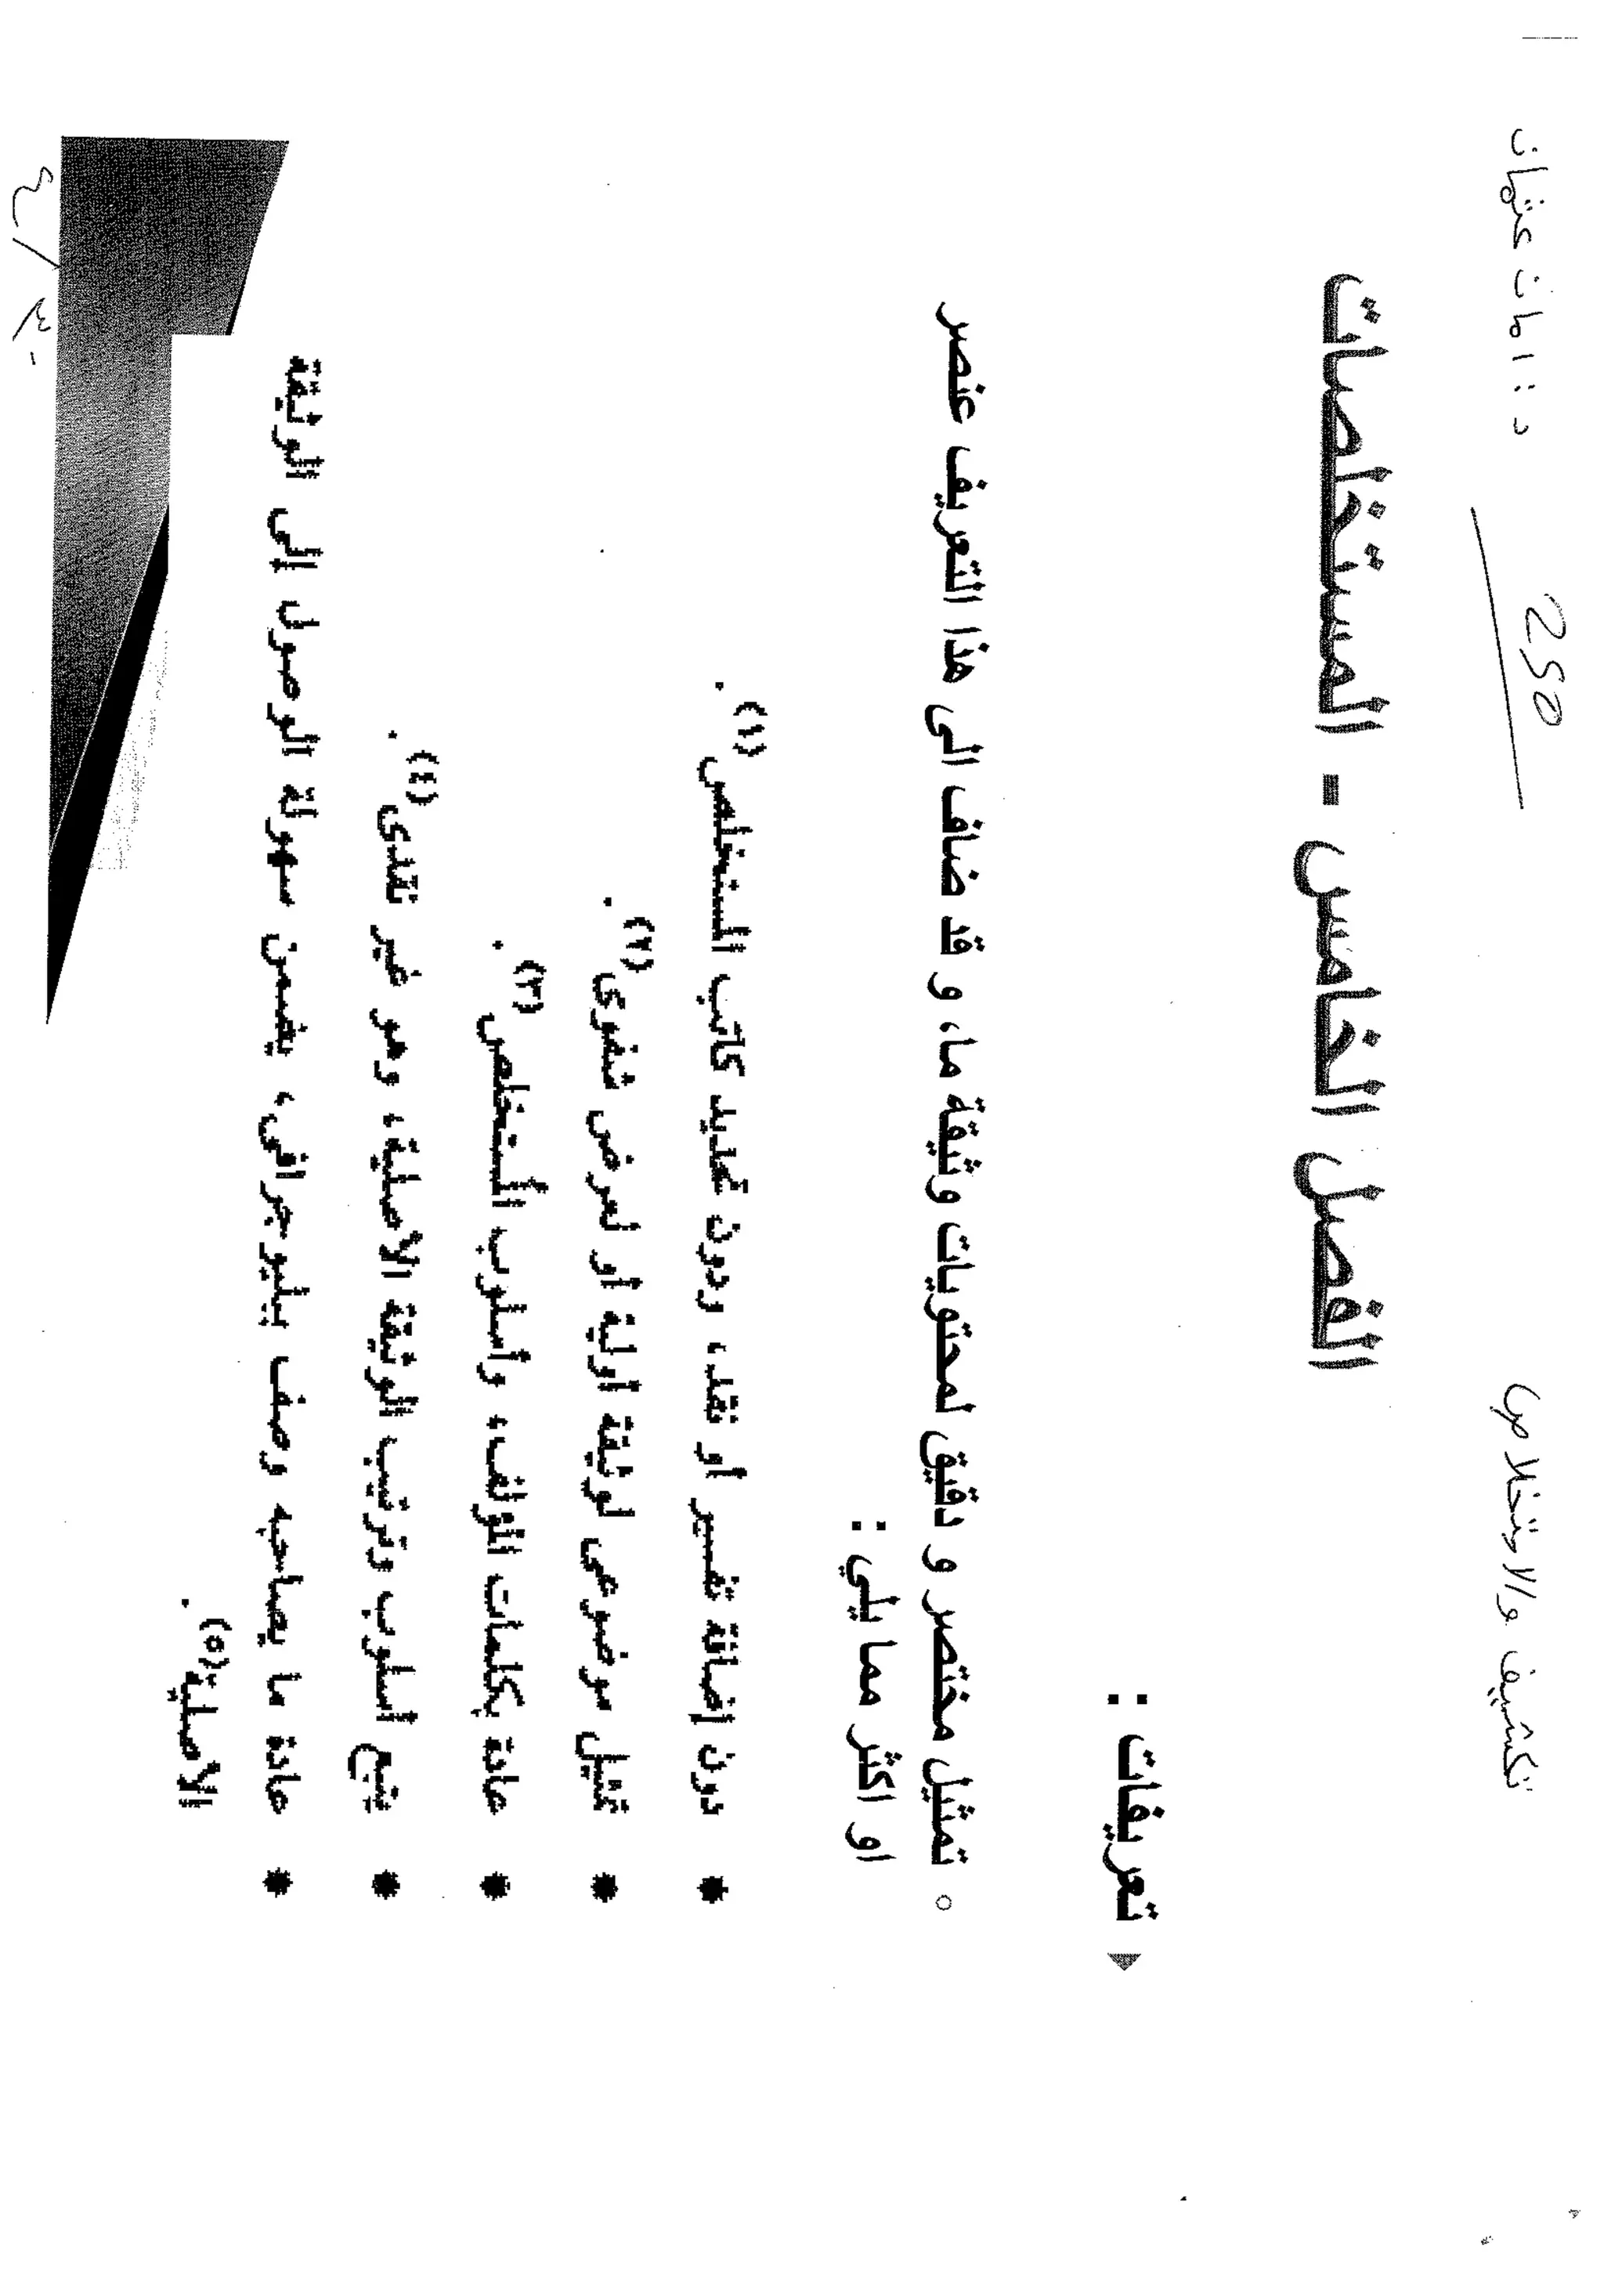 تكشيف والاستخلاص
250
د: امان عثمان
الفصل الخامس - المستخلصات
تعريفات :
تمثيل مختصر و دقيق لمحتويات وثيقة ما، و قد ضاف الى هذا التعريف عنصر
او اكثر مما يلي :
* دون إضافة تفسير أو نقد، ودون تحديد كاتب المستخلص (١) .
* تمثيل موضوعى لوثيقة أولية أو لعرض شفوى (٢) .
* عادة بكلمات المؤلف، وأسلوب المُستخلص (٣) .
* يتبع اسلوب وترتيب الوثيقة الأصلية، وهو غير نقدى (٤) .
* عادة ما يصاحبه وصف ببليوجرافى، يضمن سهولة الوصول إلى الوثيقة
الأصلية (٥) .